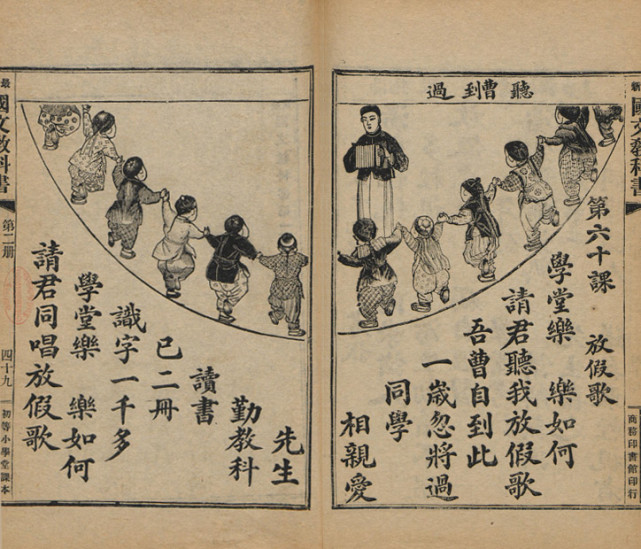 新國文教科書
商務印書館印行
聽曹到過
第六十課 放假歌
學堂樂 樂如何
請君聽我放假歌
吾曹自到此
一歲忽將過
同學
相親愛
先生
勤教科
讀書
已二冊
識字一千多
學堂樂 樂如何
請君同唱放假歌
最國文教科書
第二册
四十九
初等小學堂課本